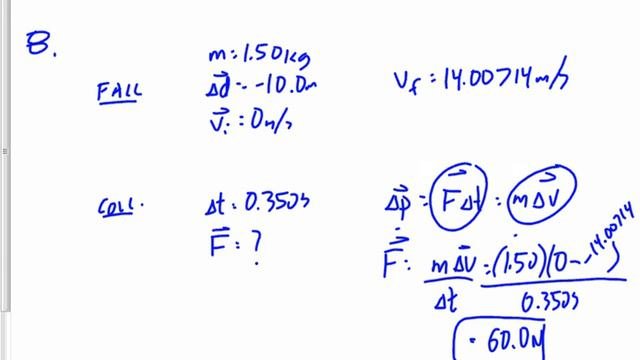 8.
FALL
m = 1.50kg
Δd⃗ = -10.0m
v⃗ᵢ = 0m/s
Vf = 14.00714m/s
COLL.
Δt = 0.350s
F⃗ = ?
Δp⃗ = F⃗Δt = mΔV⃗
F⃗ = mΔV⃗/Δt = (1.50)(0--14.00714)/0.350s
= 60.0N